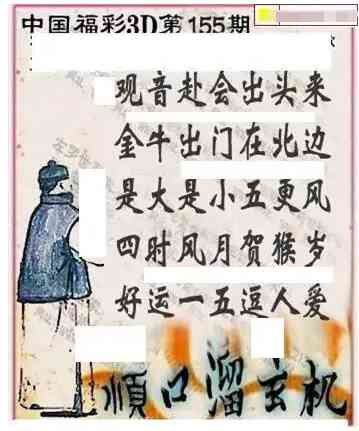 中国福彩3D第155期
观音赴会出头来
金牛出门在北边
是大是小五更风
四时风月贺猴岁
好运一五逗人爱
順口溜玄机